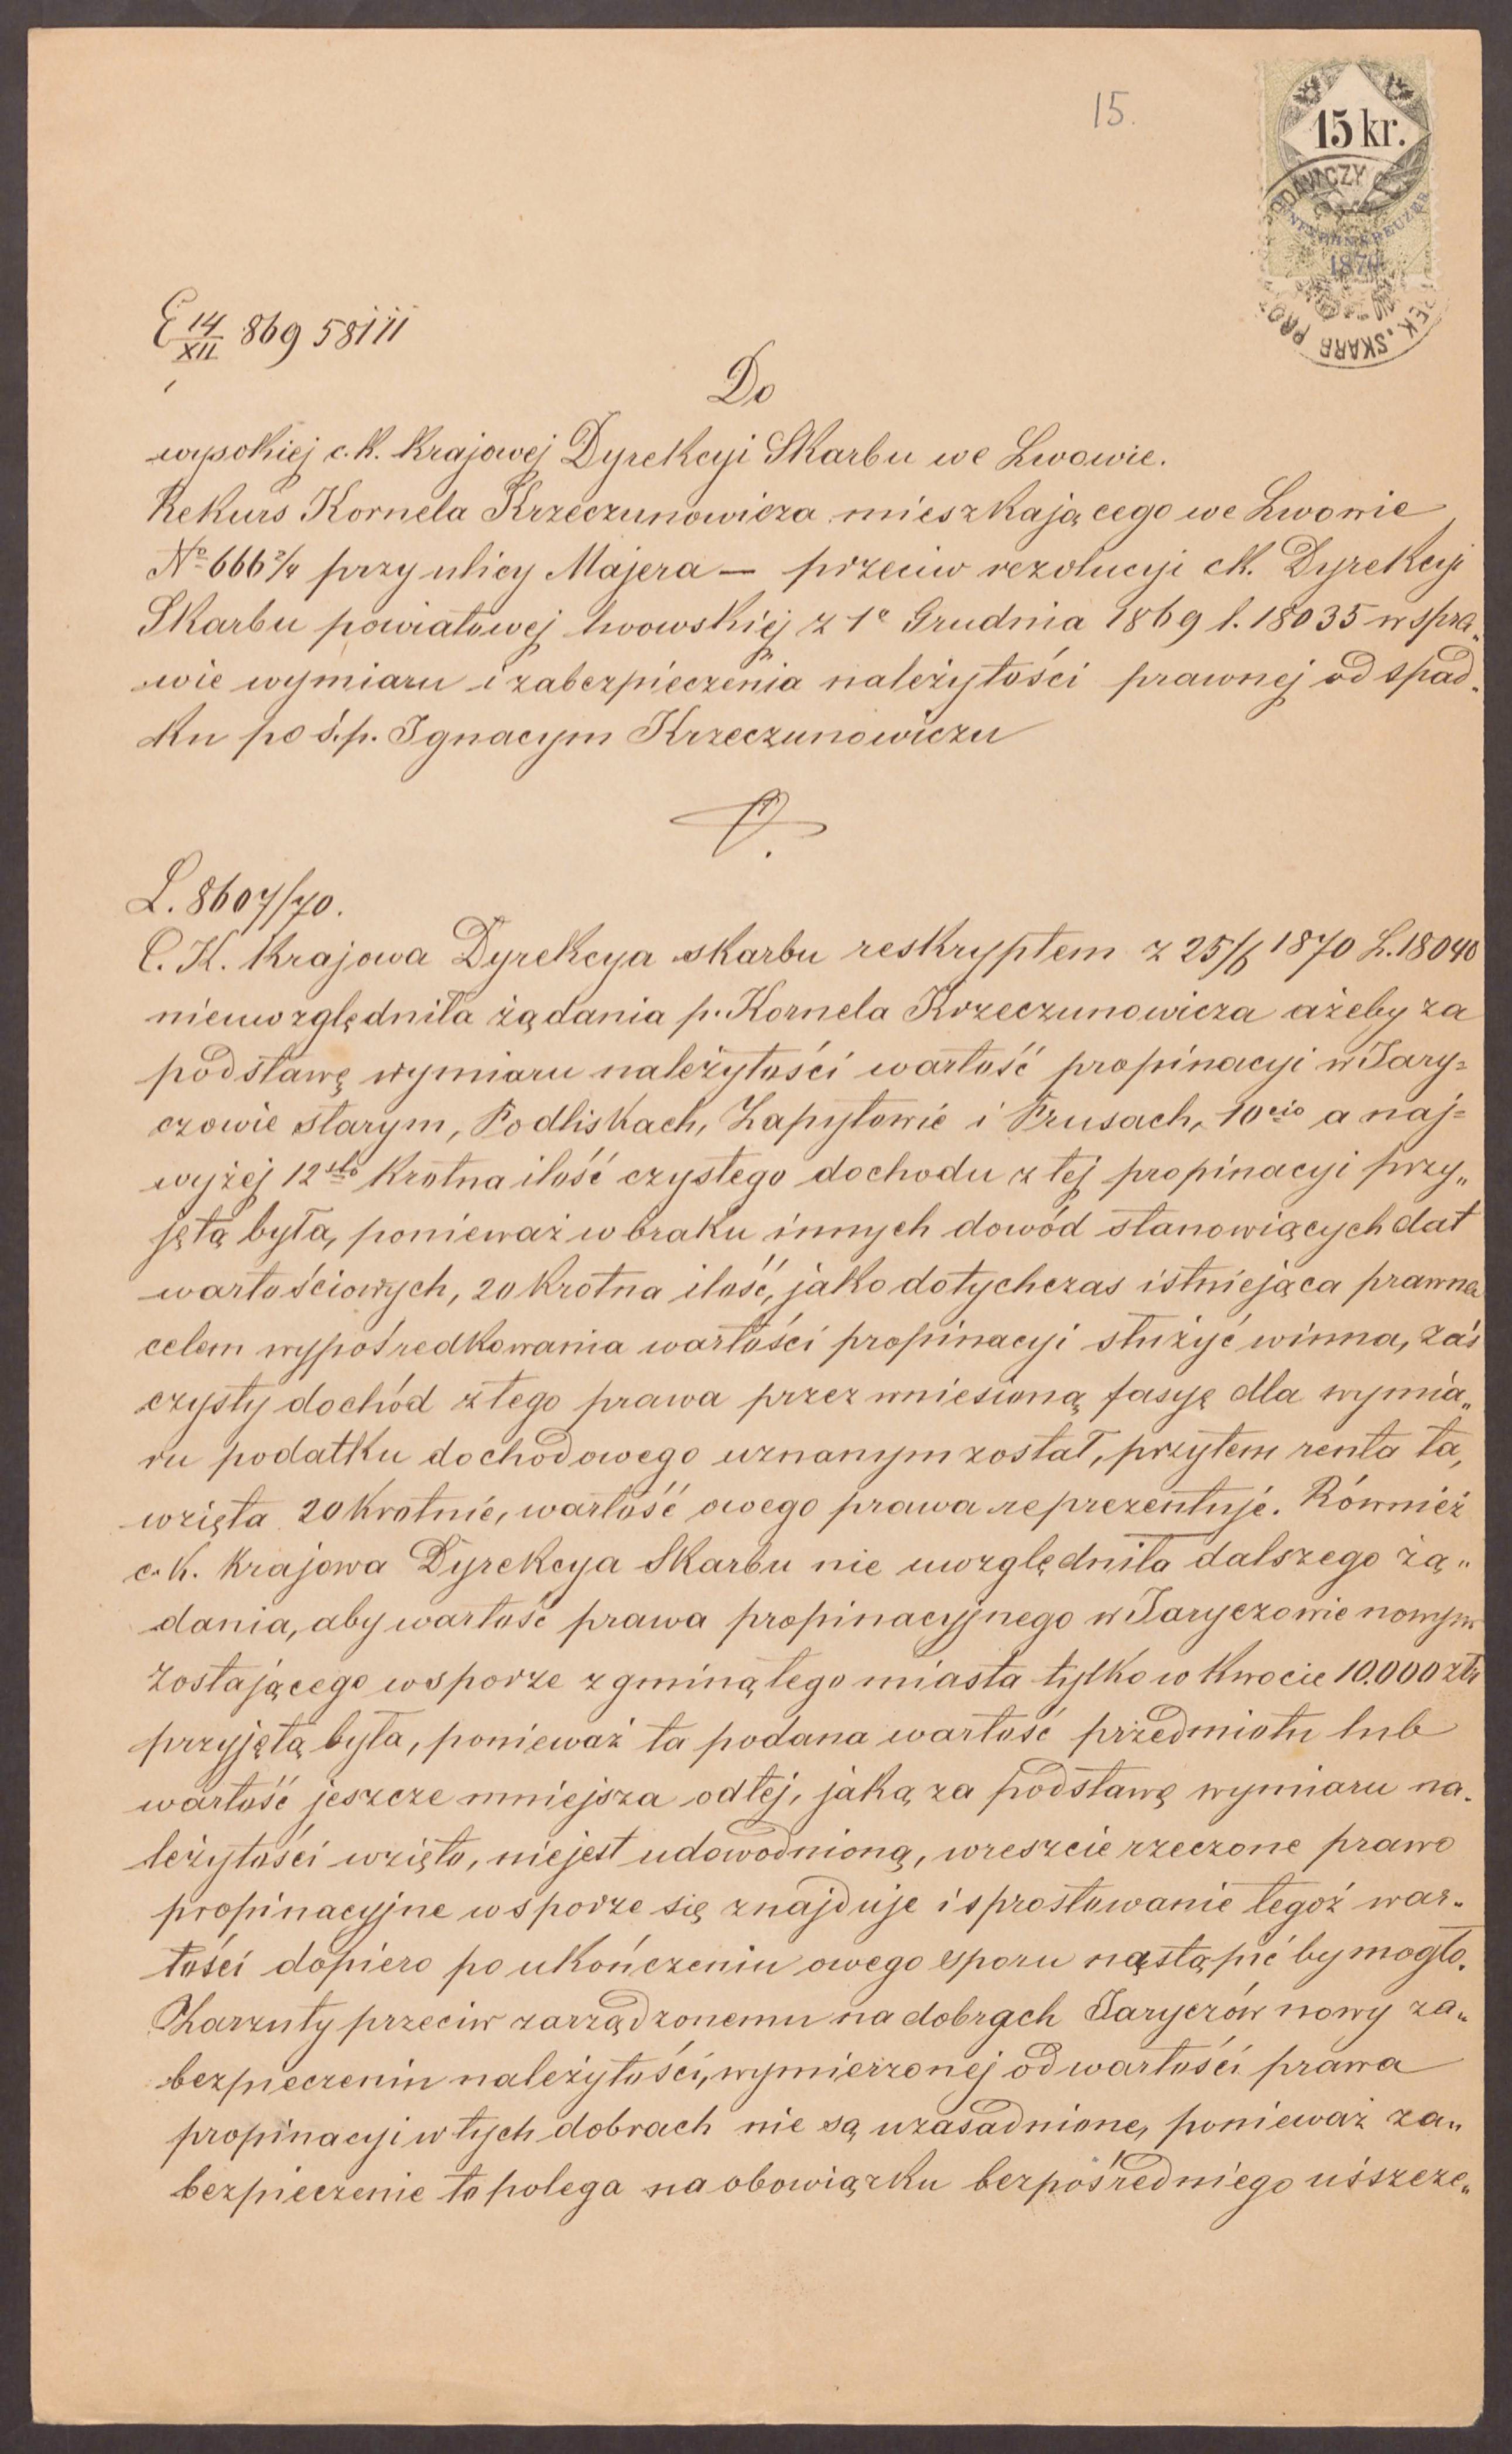 15.
15 kr.
1870
E 14/XII 869 58111
Do
wysokiej c.k. Krajowej Dyrekcyi Skarbu we Lwowie.
Rekurs Kornela Krzeczunowicza mieszkającego we Lwowie
No 666 2/4 przy ulicy Majera — przeciw rezolucyi ck. Dyrekcyi
Skarbu powiatowej lwowskiej z 1e Grudnia 1869 l. 18035 w spra„
wie wymiaru i zabezpieczenia należytości prawnej od spad„
ku po ś.p. Ignacym Krzeczunowiczu
L. 8607/70.
C. K. Krajowa Dyrekcya skarbu reskryptem z 25/6 1870 L. 18040
nieuwzględniła żądania p. Kornela Krzeczunowicza ażeby za
podstawę wymiaru należytości wartość propinacyi w Jary=
czowie starym, Podliskach, Zapytowie i Prusach, 10cio a naj=
wyżej 12sto krotna ilość czystego dochodu z tej propinacyi przy„
jętą była, ponieważ w braku innych dowód stanowiących dat
wartościowych, 20 krotna ilość, jako dotychczas istniejąca prawna
celem wypośredkowania wartości propinacyi służyć winna, zaś
czysty dochód z tego prawa przez wniesioną fasyę dla wymia„
ru podatku dochodowego uznanym został, przytem renta ta,
wzięta 20 krotnie, wartość owego prawa reprezentuje. Również
c.k. Krajowa Dyrekcya Skarbu nie uwzględniła dalszego żą„
dania, aby wartość prawa propinacyjnego w Jaryczowie nowym
zostającego w sporze z gminą tego miasta tylko w kwocie 10.000 złr
przyjętą była, ponieważ ta podana wartość przedmiotu lub
wartość jeszcze mniejsza od tej, jaką za podstawę wymiaru na.
leżytości wzięto, niejest udowodnioną, wreszcie rzeczone prawo
propinacyjne w sporze się znajduje i sprostowanie tegoż war„
tości dopiero po ukończeniu owego sporu nąstąpić by mogło.
Zarzuty przeciw zarządzonemu na dobrach Jaryczów nowy za„
bezpieczeniu należytości, wymierzonej od wartości prawa
propinacyi w tych dobrach nie są uzasadnione, ponieważ za„
bezpieczenie to polega na obowiązku bezpośredniego uiszcze„